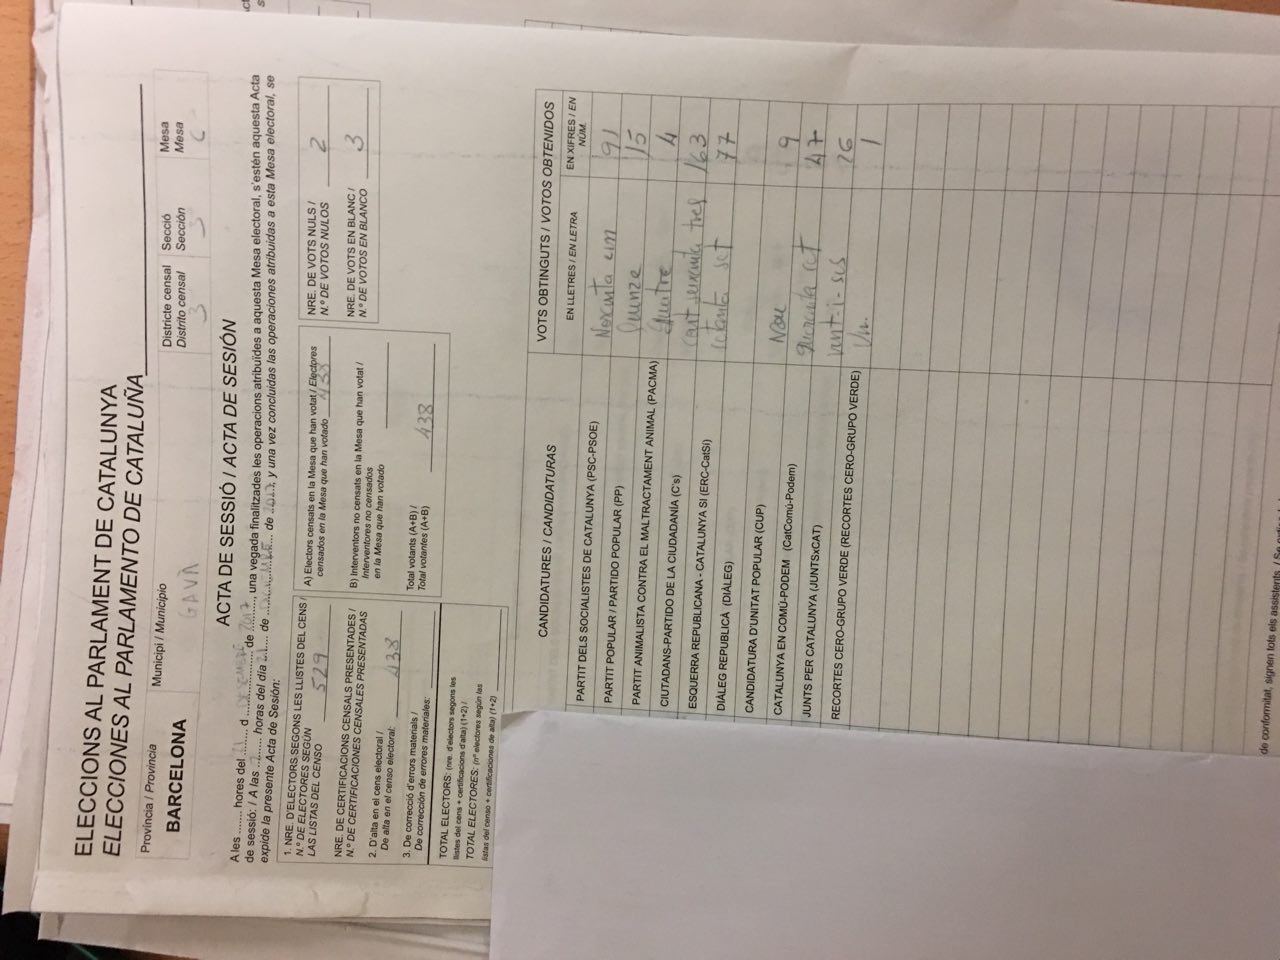 ELECCIONS AL PARLAMENT DE CATALUNYA
ELECCIONES AL PARLAMENTO DE CATALUÑA
Província / Provincia
BARCELONA
Municipi / Municipio
GAVÀ
Districte censal
Distrito censal
3
Secció
Sección
3
Mesa
Mesa
C
ACTA DE SESSIÓ / ACTA DE SESIÓN
A les ....... hores del 21 d DESEMBRE de 2017, una vegada finalitzades les operacions atribuïdes a aquesta Mesa electoral, s'estén aquesta Acta
de sessió: / A las ....... horas del día 21 de DICIEMBRE de 2017, y una vez concluidas las operaciones atribuidas a esta Mesa electoral, se
expide la presente Acta de Sesión:
1. NRE. D'ELECTORS SEGONS LES LLISTES DEL CENS /
N.º DE ELECTORES SEGÚN
LAS LISTAS DEL CENSO 529
NRE. DE CERTIFICACIONS CENSALS PRESENTADES /
N.º DE CERTIFICACIONES CENSALES PRESENTADAS
2. D'alta en el cens electoral /
De alta en el censo electoral: 438
3. De correcció d'errors materials /
De corrección de errores materiales:
TOTAL ELECTORS: (nre. d'electors segons les
llistes del cens + certificacions d'alta) (1+2) /
TOTAL ELECTORES: (nº electores según las
listas del censo + certificaciones de alta) (1+2)
A) Electors censats en la Mesa que han votat / Electores
censados en la Mesa que han votado 438
B) Interventors no censats en la Mesa que han votat /
Interventores no censados
en la Mesa que han votado
Total votants (A+B) /
Total votantes (A+B) 438
NRE. DE VOTS NULS /
N.º DE VOTOS NULOS 2
NRE. DE VOTS EN BLANC /
N.º DE VOTOS EN BLANCO 3
CANDIDATURES / CANDIDATURAS
VOTS OBTINGUTS / VOTOS OBTENIDOS
EN LLETRES / EN LETRA
EN XIFRES / EN
NÚM.
PARTIT DELS SOCIALISTES DE CATALUNYA (PSC-PSOE) 91
PARTIT POPULAR / PARTIDO POPULAR (PP) Quinze 15
PARTIT ANIMALISTA CONTRA EL MALTRACTAMENT ANIMAL (PACMA) Quatre 4
CIUTADANS-PARTIDO DE LA CIUDADANÍA (C's) cent seixanta tres 163
ESQUERRA REPUBLICANA - CATALUNYA SI (ERC-CatSí) setanta set 77
DIÀLEG REPUBLICÀ (DIÀLEG)
CANDIDATURA D'UNITAT POPULAR (CUP) Nou 9
CATALUNYA EN COMÚ-PODEM (CatComú-Podem) Quaranta set 47
JUNTS PER CATALUNYA (JUNTSxCAT) vint-i-sis 26
RECORTES CERO-GRUPO VERDE (RECORTES CERO-GRUPO VERDE) Un. 1
de conformitat, signen tots els assistents. /